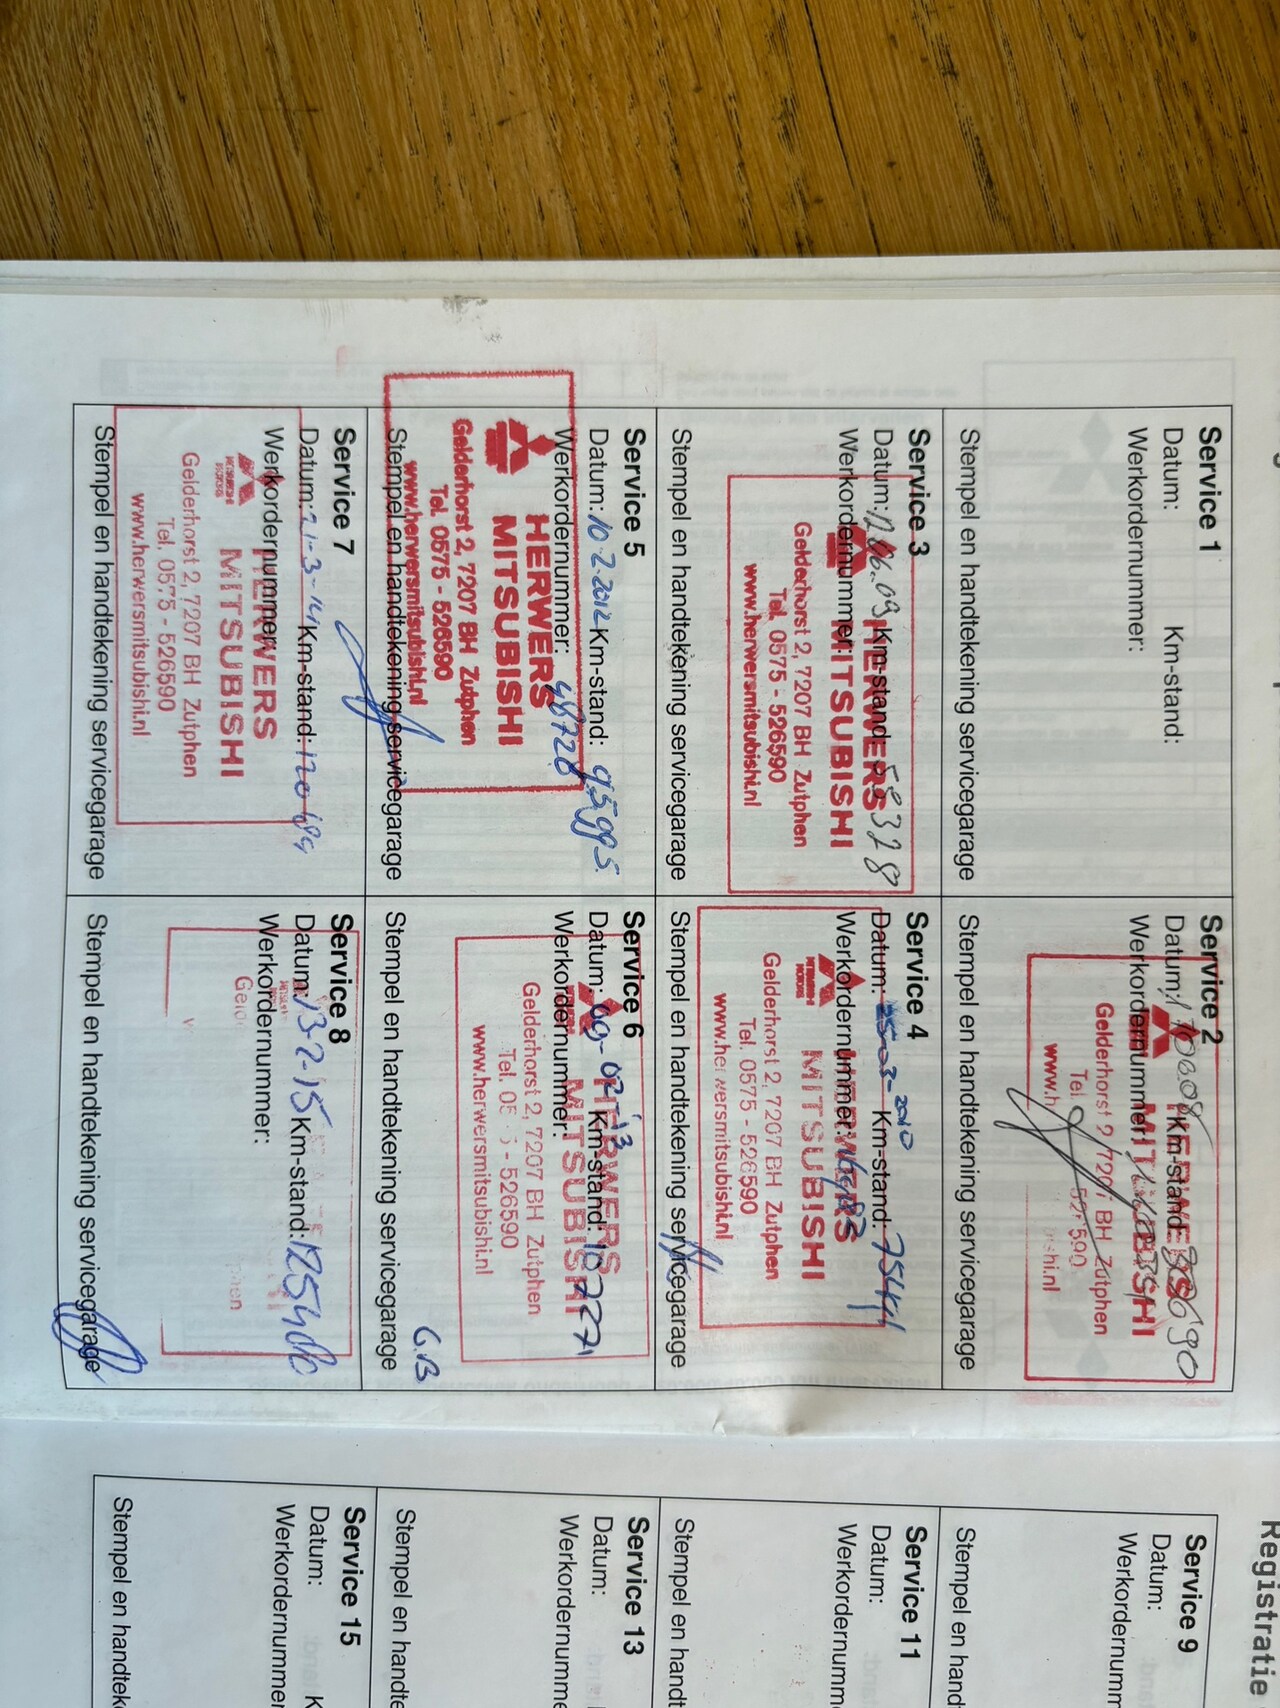 Service 1
Datum: Km-stand:
Werkordernummer:
Stempel en handtekening servicegarage
Service 2
Datum: Km-stand
Werkordernummer:
HERWERS
MITSUBISHI
Gelderhorst 2, 7207 BH Zutphen
Tel.
Stempel en handtekening servicegarage
Service 3
Datum: Km-stand: 58328
Werkordernummer:
HERWERS
MITSUBISHI
Gelderhorst 2, 7207 BH Zutphen
Tel. 0575 - 526590
www.herwersmitsubishi.nl
Stempel en handtekening servicegarage
Service 4
Datum: 25-03-2010 Km-stand:
Werkordernummer:
HERWERS
MITSUBISHI
MITSUBISHI
MOTORS
Gelderhorst 2, 7207 BH Zutphen
Tel. 0575 - 526590
www.herwersmitsubishi.nl
Stempel en handtekening servicegarage
Service 5
Datum: 10-2-2012 Km-stand: 95995
Werkordernummer: 48728
HERWERS
MITSUBISHI
Gelderhorst 2, 7207 BH Zutphen
Tel. 0575 - 526590
www.herwersmitsubishi.nl
Stempel en handtekening servicegarage
Service 6
Datum: 09-02-'13 Km-stand: 107271
Werkordernummer:
HERWERS
MITSUBISHI
Gelderhorst 2, 7207 BH Zutphen
Tel. 05 5 - 526590
www.herwersmitsubishi.nl
Stempel en handtekening servicegarage
G.B
Service 7
Datum: 21-3-14 Km-stand: 120689
Werkordernummer:
HERWERS
MITSUBISHI
MITSUBISHI
MOTORS
Gelderhorst 2, 7207 BH Zutphen
Tel. 0575 - 526590
www.herwersmitsubishi.nl
Stempel en handtekening servicegarage
Service 8
Datum: 13-2-15 Km-stand:
Werkordernummer:
Stempel en handtekening servicegarage
Registratie
Service 9
Datum:
Werkordernumm
Stempel en han
Service 11
Datum:
Werkordernumm
Stempel en handt
Service 13
Datum:
Werkordernumme
Stempel en handte
Service 15
Datum: K
Werkordernummer
Stempel en handtek